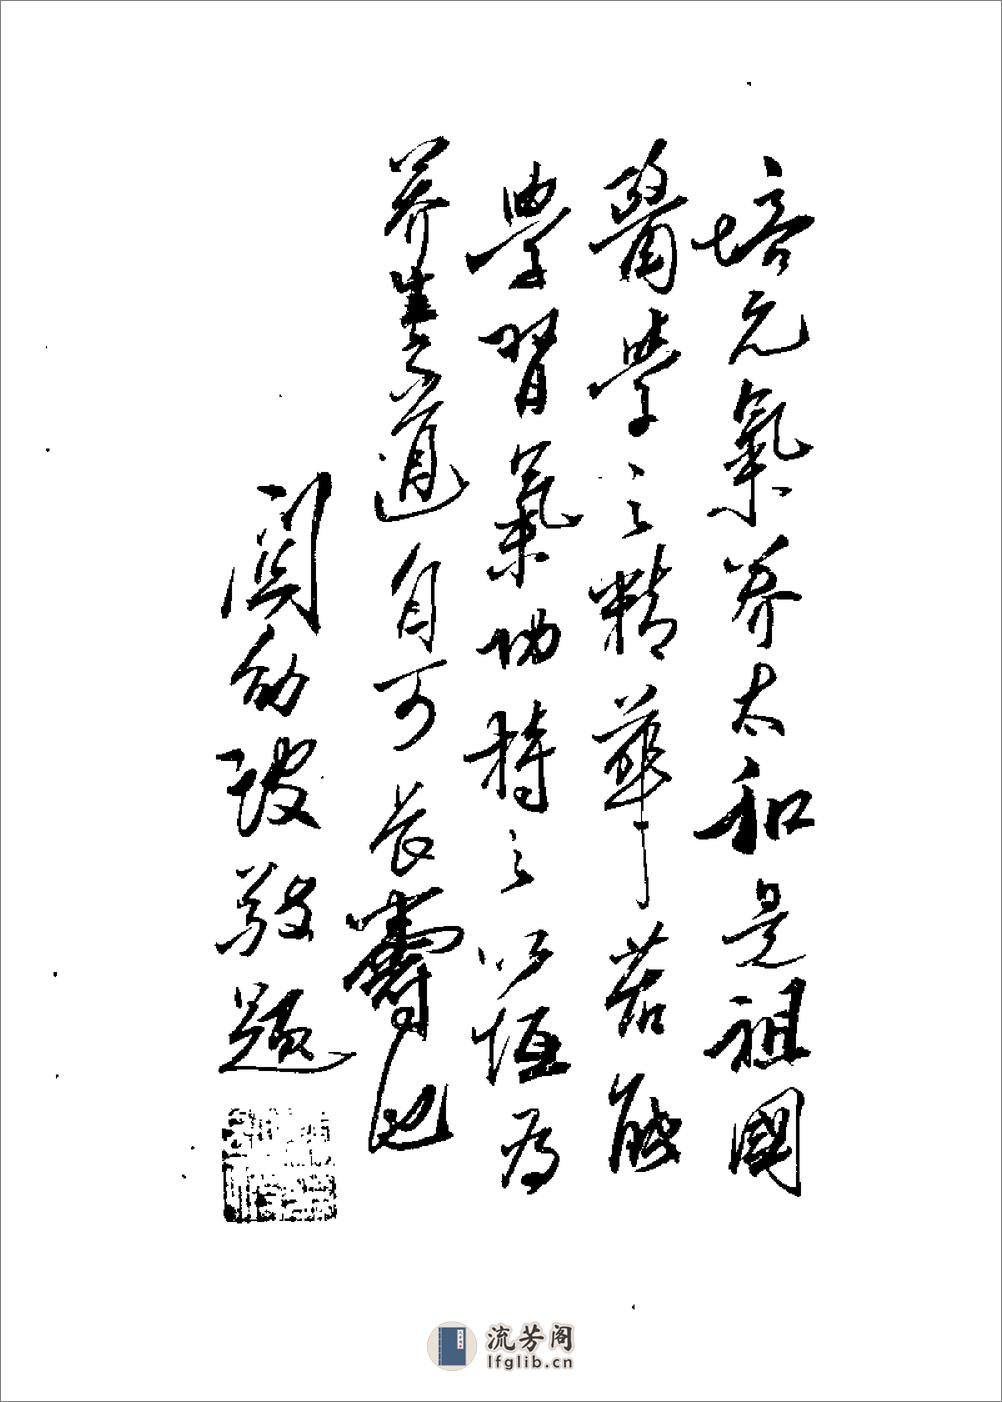 培元氣养太和是祖國
醫學之精華若能
學習氣功持之以恒为
养生之道自可长壽也
関幼波敬題
流芳阁
lfglib.cn